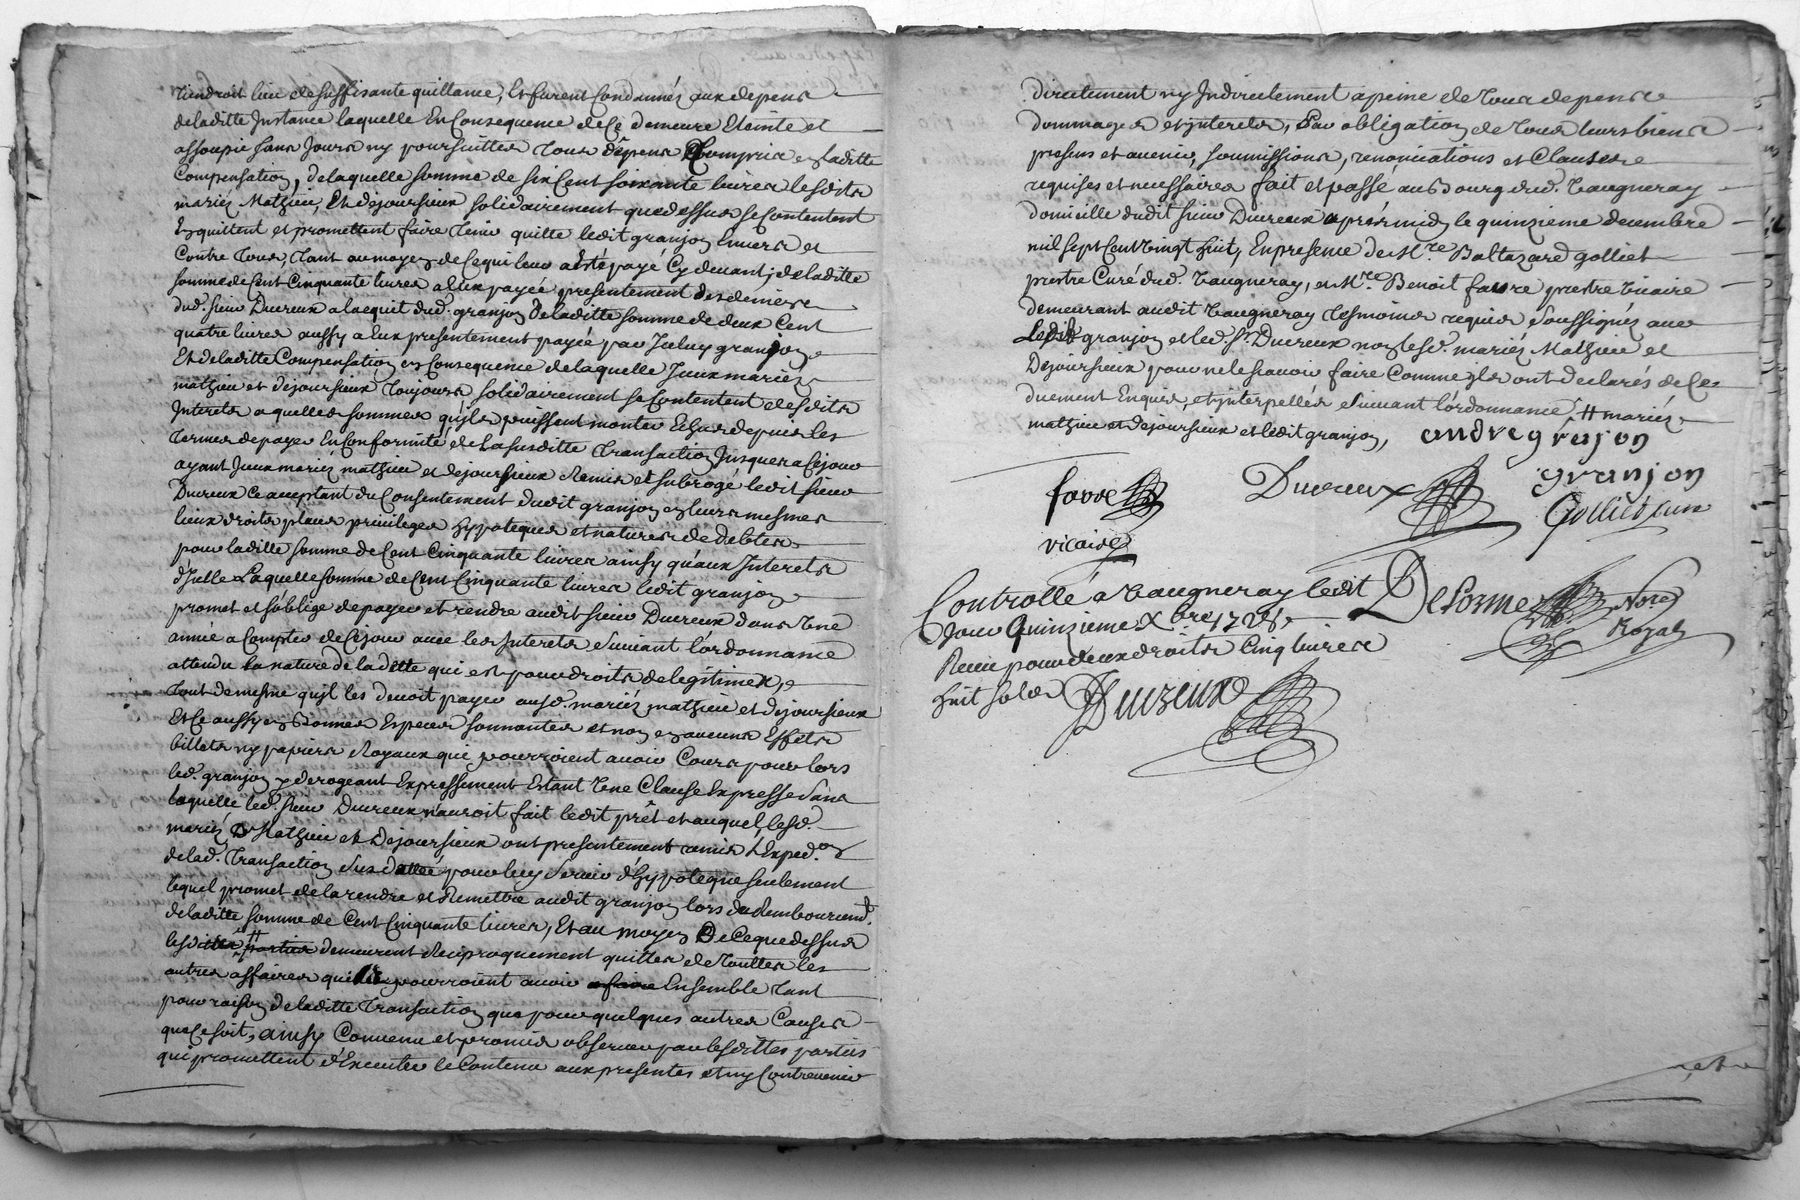 tiendroit lieu de suffisante quittance, Et furent Condannés aux depens
de laditte Instance laquelle En Consequence de Ce demeure Eteinte et
assoupie sans Jours ny poursuittes tous depens Compris en laditte
Compensation, de laquelle somme de six Cent soixante livres lesdits
mariés Mathieu, Et dejoursieux solidairement que dessus se Contentent
Enquittent et promettent faire tenir quitte ledit granjon Envers et
Contre tous, tant au moyen de Ce qui leur a été payé Cy devant, de laditte
somme de Cent Cinquante livres a Eux payée presentement des deniers
dud. sieur Ducreux a lacquit dud. granjon de laditte somme de deux Cent
quatre livres aussy a Eux presentement payée par Iceluy granjon
Et de laditte Compensation en Consequence de laquelle Iceux mariés
mathieu et dejoursieux toujours solidairement se Contentent desdits
Interets a quelles sommes qu'ils puissent monter Echus depuis les
termes de payer En Conformité de la susditte transaction Jusques a Cejour
ayant Iceux mariés mathieu et dejoursieux Remis et subrogé ledit sieur
Ducreux Ce acceptant du Consentement dudit granjon en leurs mesmes
lieux droits places privileges hypoteques et natures de debtes
pour laditte somme de Cent Cinquante livres ainsy qu'aux Interets
d'Icelle Laquelle somme de Cent Cinquante livres ledit granjon
promet et s'oblige de payer et rendre audit sieur Ducreux dans Une
année a Compter de Cejour avec les Interets suivant l'ordonnance
attendu la nature de la dette qui est pour droits de legitimes,
tout de mesme qu'il les devoit payer ausd. mariés mathieu et dejoursieux
Et Ce aussy en bonnes Especes sonnantes et non en aucuns Effets
billets ny papiers Royaux qui pourroient avoir Cours pour lors
led. granjon y derogeant Expressement Estant Une Clause Expresse sans
laquelle led. sieur Ducreux n'auroit fait ledit prêt et auquel lesd.
mariés Mathieu et Dejoursieux ont presentement remis l'Exped.on
de lad. transaction susdattée pour luy servir d'hypoteque seulement
lequel promet de la rendre et Remettre audit granjon lors du Remboursem.t
de laditte somme de Cent Cinquante livres, Et au moyen De Ceque dessus
lesdittes # parties demeurent Reciproquement quittes de touttes les
autres affaires qu'ils pourroient avoir a faire Ensemble tant
pour raison de laditte transaction que pour quelques autres Causes
que Ce soit, ainsy Convenu et promis observer par lesdittes parties
qui promettent d'Executer le Contenu aux presentes et n'y Contrevenir
directement ny Indirectement a peine de tous depens
dommages et interets, Par obligation de tous leurs biens
presens et avenir, soumissions, renonciations et Clauses
requises et necessaires fait et passé au Bourg dud. Vaugneray
domicille dudit sieur Ducreux apres midy le quinzieme decembre
mil sept Cent vingt huit, En presence de M.re Baltazard golliet
prestre Curé dud. Vaugneray, et M.re Benoit favre prestre vicaire
demeurant audit Vaugneray tesmoins requis soussignés avec
Ledit granjon et led. Sr. Ducreux non lesd. mariés Mathieu et
Dejoursieux pour ne le sçavoir faire Comme ils ont declarés de Ce
duement Enquis, et interpellés suivant l'ordonnance, # mariés
mathieu et dejoursieux et ledit granjon,
andre grajon
granjon
favre
vicaire
Ducreux
Golliet Cure
Controllé a Vaugneray ledit
Jour Quinzieme Xbre 1728,
Receu pour deux droits Cinq livres
huit sols
Ducreux
Delorme
Nore
Royal